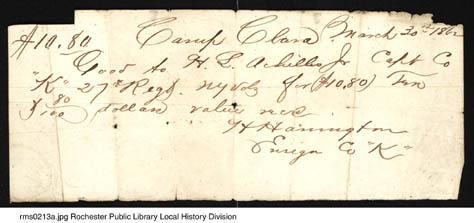 $10.80
Camp Clara March 20th 1862
Good to H. L. Achilles Jr Capt Co
"K" 27th Regt. NY Vols for ($10.80) Ten
& 80/100 dollars value recd
H Hanington
Ensign Co "K"
rms0213a.jpg Rochester Public Library Local History Division